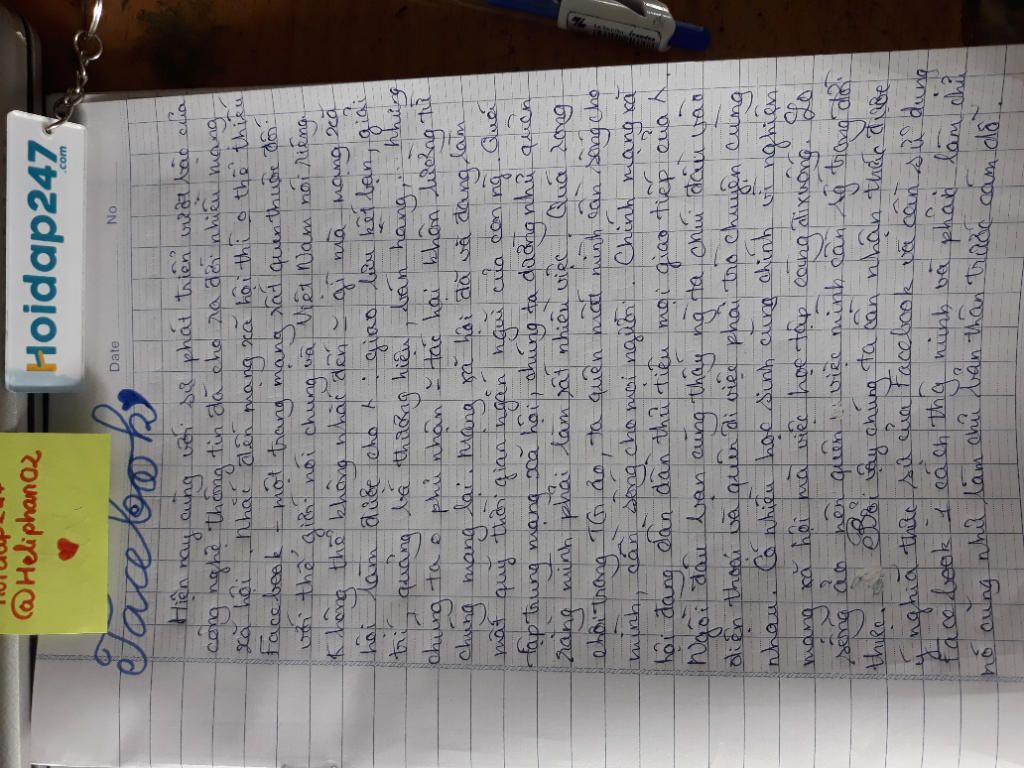 Hoidap247
.com
@Heliphan02
Date
No
Facebook
Hiện nay cùng với sự phát triển vượt bậc của
công nghệ thông tin đã cho ra đời nhiều mạng
xã hội. Nhắc đến mạng xã hội thì o thể thiếu
Facebook - một trang mạng rất quen thuộc đối
với thế giới nói chung và Việt Nam nói riêng.
Không thể không nhắc đến ~ gì mà mạng xã
hội làm được cho λ: giao lưu kết bạn, giải
trí, quảng bá thương hiệu, bán hàng,... nhưng
chúng ta o phủ nhận ~ tác hại khôn lường từ
chúng mang lại. Mạng xã hội đã và đang làm
mất quỹ thời gian ngắn ngủi của con ng. Quá
tập trung mạng xã hội, chúng ta dường như quên
rằng mình phải làm rất nhiều việc. Quá sống
ảo, ta quên mất mình cần sống cho
mình, cần sống cho mọi người. Chính mạng xã
hội đang dần dần thủ tiêu mọi giao tiếp của λ.
Ngồi đâu bạn cũng thấy ng ta chúi đầu vào
điện thoại và quên đi việc phải trò chuyện cùng
nhau. Có nhiều học sinh cũng chính vì nghiện
mạng xã hội mà việc học tập càng đi xuống. Họ
sống ảo nên quên ~ việc mình cần lý trong đời
thực. Bởi vậy chúng ta cần nhận thức được
ý nghĩa thực sự của Facebook và cần sử dụng
Facebook 1 cách thg minh và phải làm chủ
nó cũng như làm chủ bản thân trước cám dỗ.